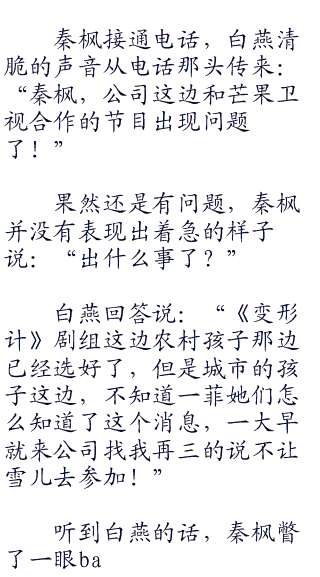 秦枫接通电话，白燕清
脆的声音从电话那头传来：
“秦枫，公司这边和芒果卫
视合作的节目出现问题
了！”
果然还是有问题，秦枫
并没有表现出着急的样子
说：“出什么事了？”
白燕回答说：“《变形
计》剧组这边农村孩子那边
已经选好了，但是城市的孩
子这边，不知道一菲她们怎
么知道了这个消息，一大早
就来公司找我再三的说不让
雪儿去参加！”
听到白燕的话，秦枫瞥
了一眼ba